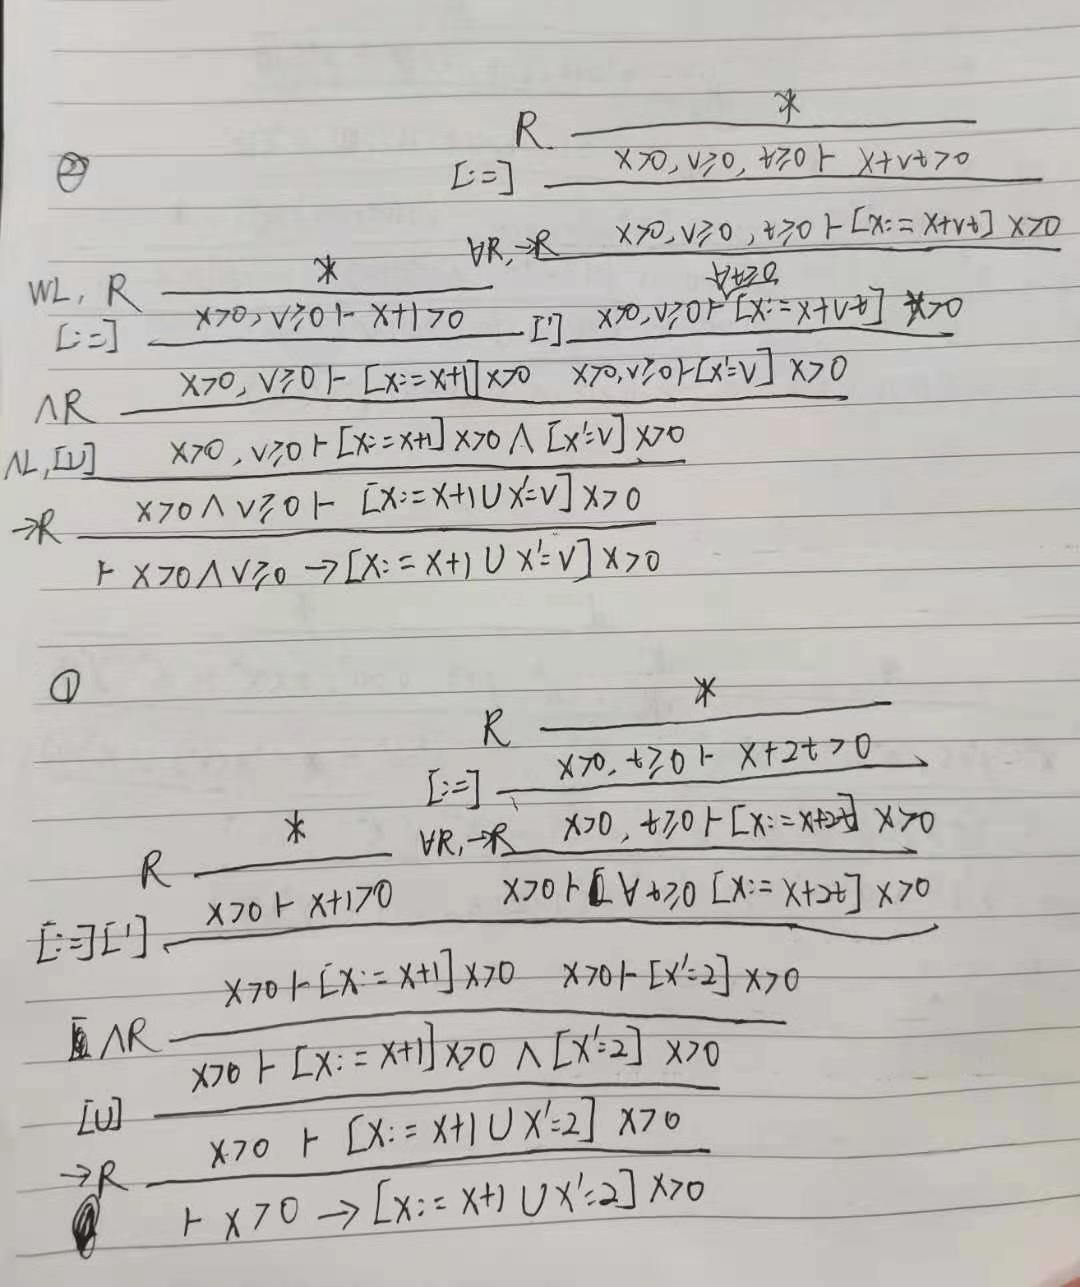 ②
*
R
x>0, v≥0, t≥0 ⊢ x+vt>0
[:=]
x>0, v≥0, t≥0 ⊢ [x:=x+vt] x>0
∀R, →R
∀t≥0
x>0, v≥0 ⊢ [x:=x+vt] x>0
[']
*
WL, R
x>0, v≥0 ⊢ x+1>0
[:=]
x>0, v≥0 ⊢ [x:=x+1] x>0 x>0, v≥0 ⊢ [x'=v] x>0
∧R
x>0, v≥0 ⊢ [x:=x+1] x>0 ∧ [x'=v] x>0
∧L, [∪]
x>0 ∧ v≥0 ⊢ [x:=x+1 ∪ x'=v] x>0
→R
⊢ x>0 ∧ v≥0 → [x:=x+1 ∪ x'=v] x>0
①
*
R
x>0, t≥0 ⊢ x+2t>0
[:=]
x>0, t≥0 ⊢ [x:=x+2t] x>0
∀R, →R
*
R
x>0 ⊢ x+1>0 x>0 ⊢ ∀t≥0 [x:=x+2t] x>0
[:=] [']
x>0 ⊢ [x:=x+1] x>0 x>0 ⊢ [x'=2] x>0
∧R
x>0 ⊢ [x:=x+1] x>0 ∧ [x'=2] x>0
[∪]
x>0 ⊢ [x:=x+1 ∪ x'=2] x>0
→R
⊢ x>0 → [x:=x+1 ∪ x'=2] x>0